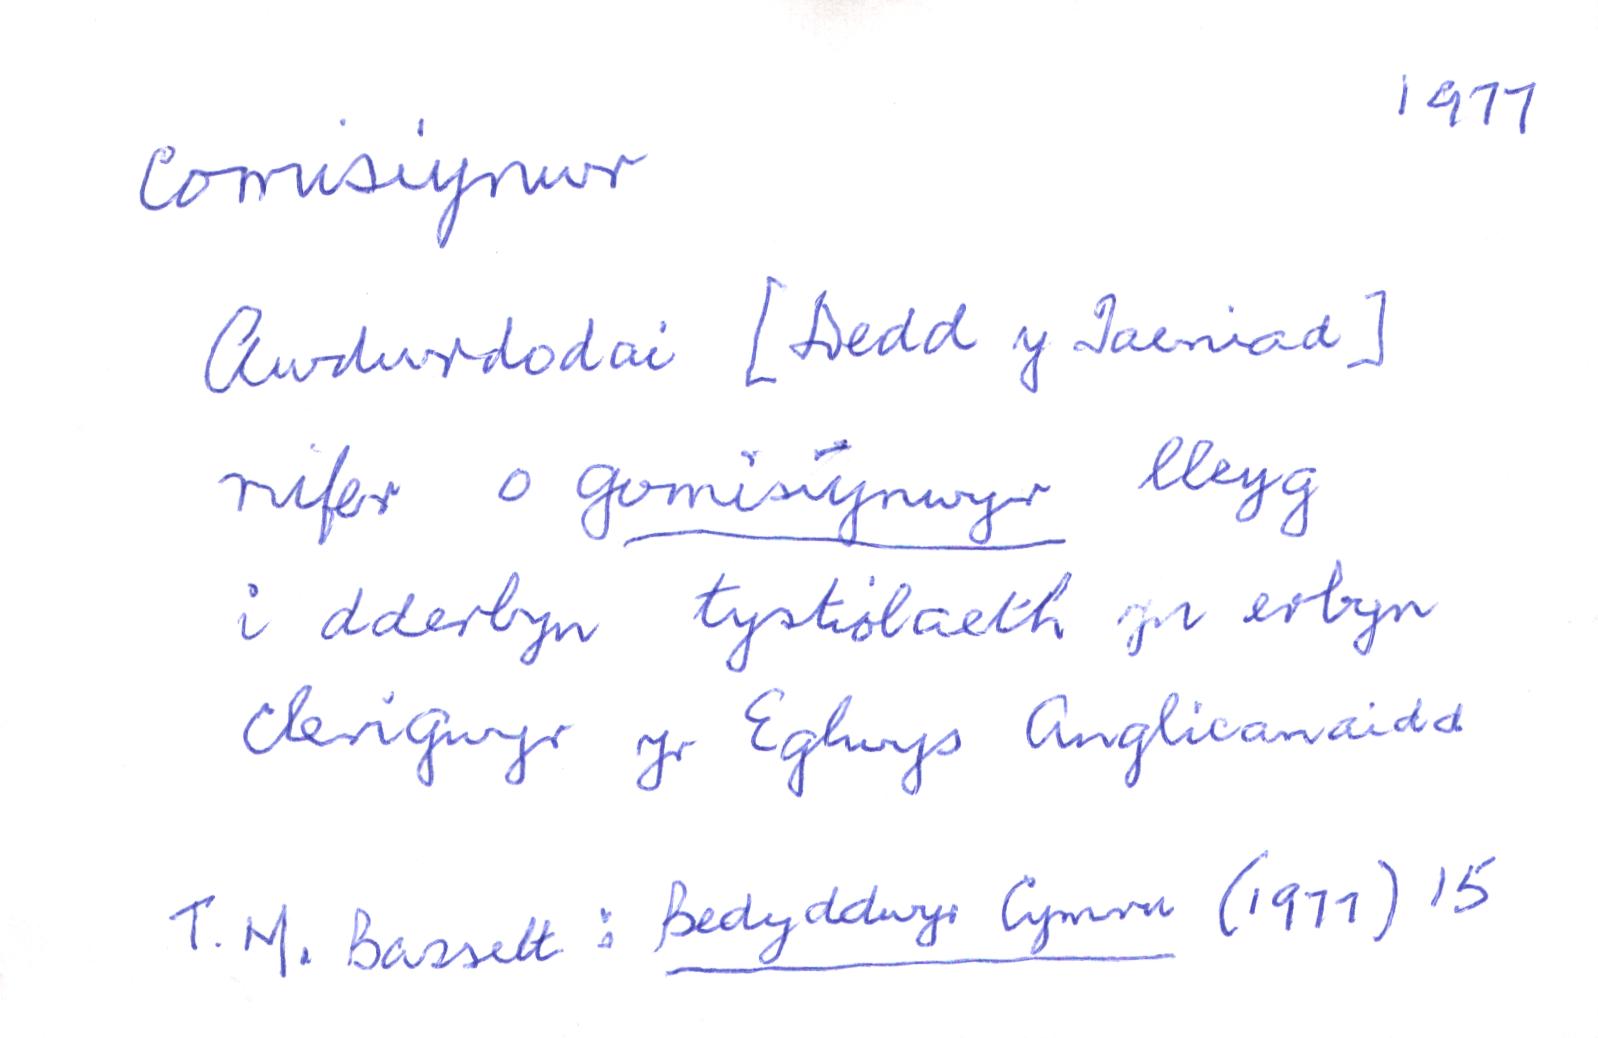 1977
Comisiynwr
Awdurdodai [Dedd y Taeniad]
nifer o gomisiynwyr lleyg
i dderbyn tystiolaeth yn erbyn
clerigwyr yr Eglwys Anglicanaidd
T. M. Bassett : Bedyddwyr Cymru (1977) 15